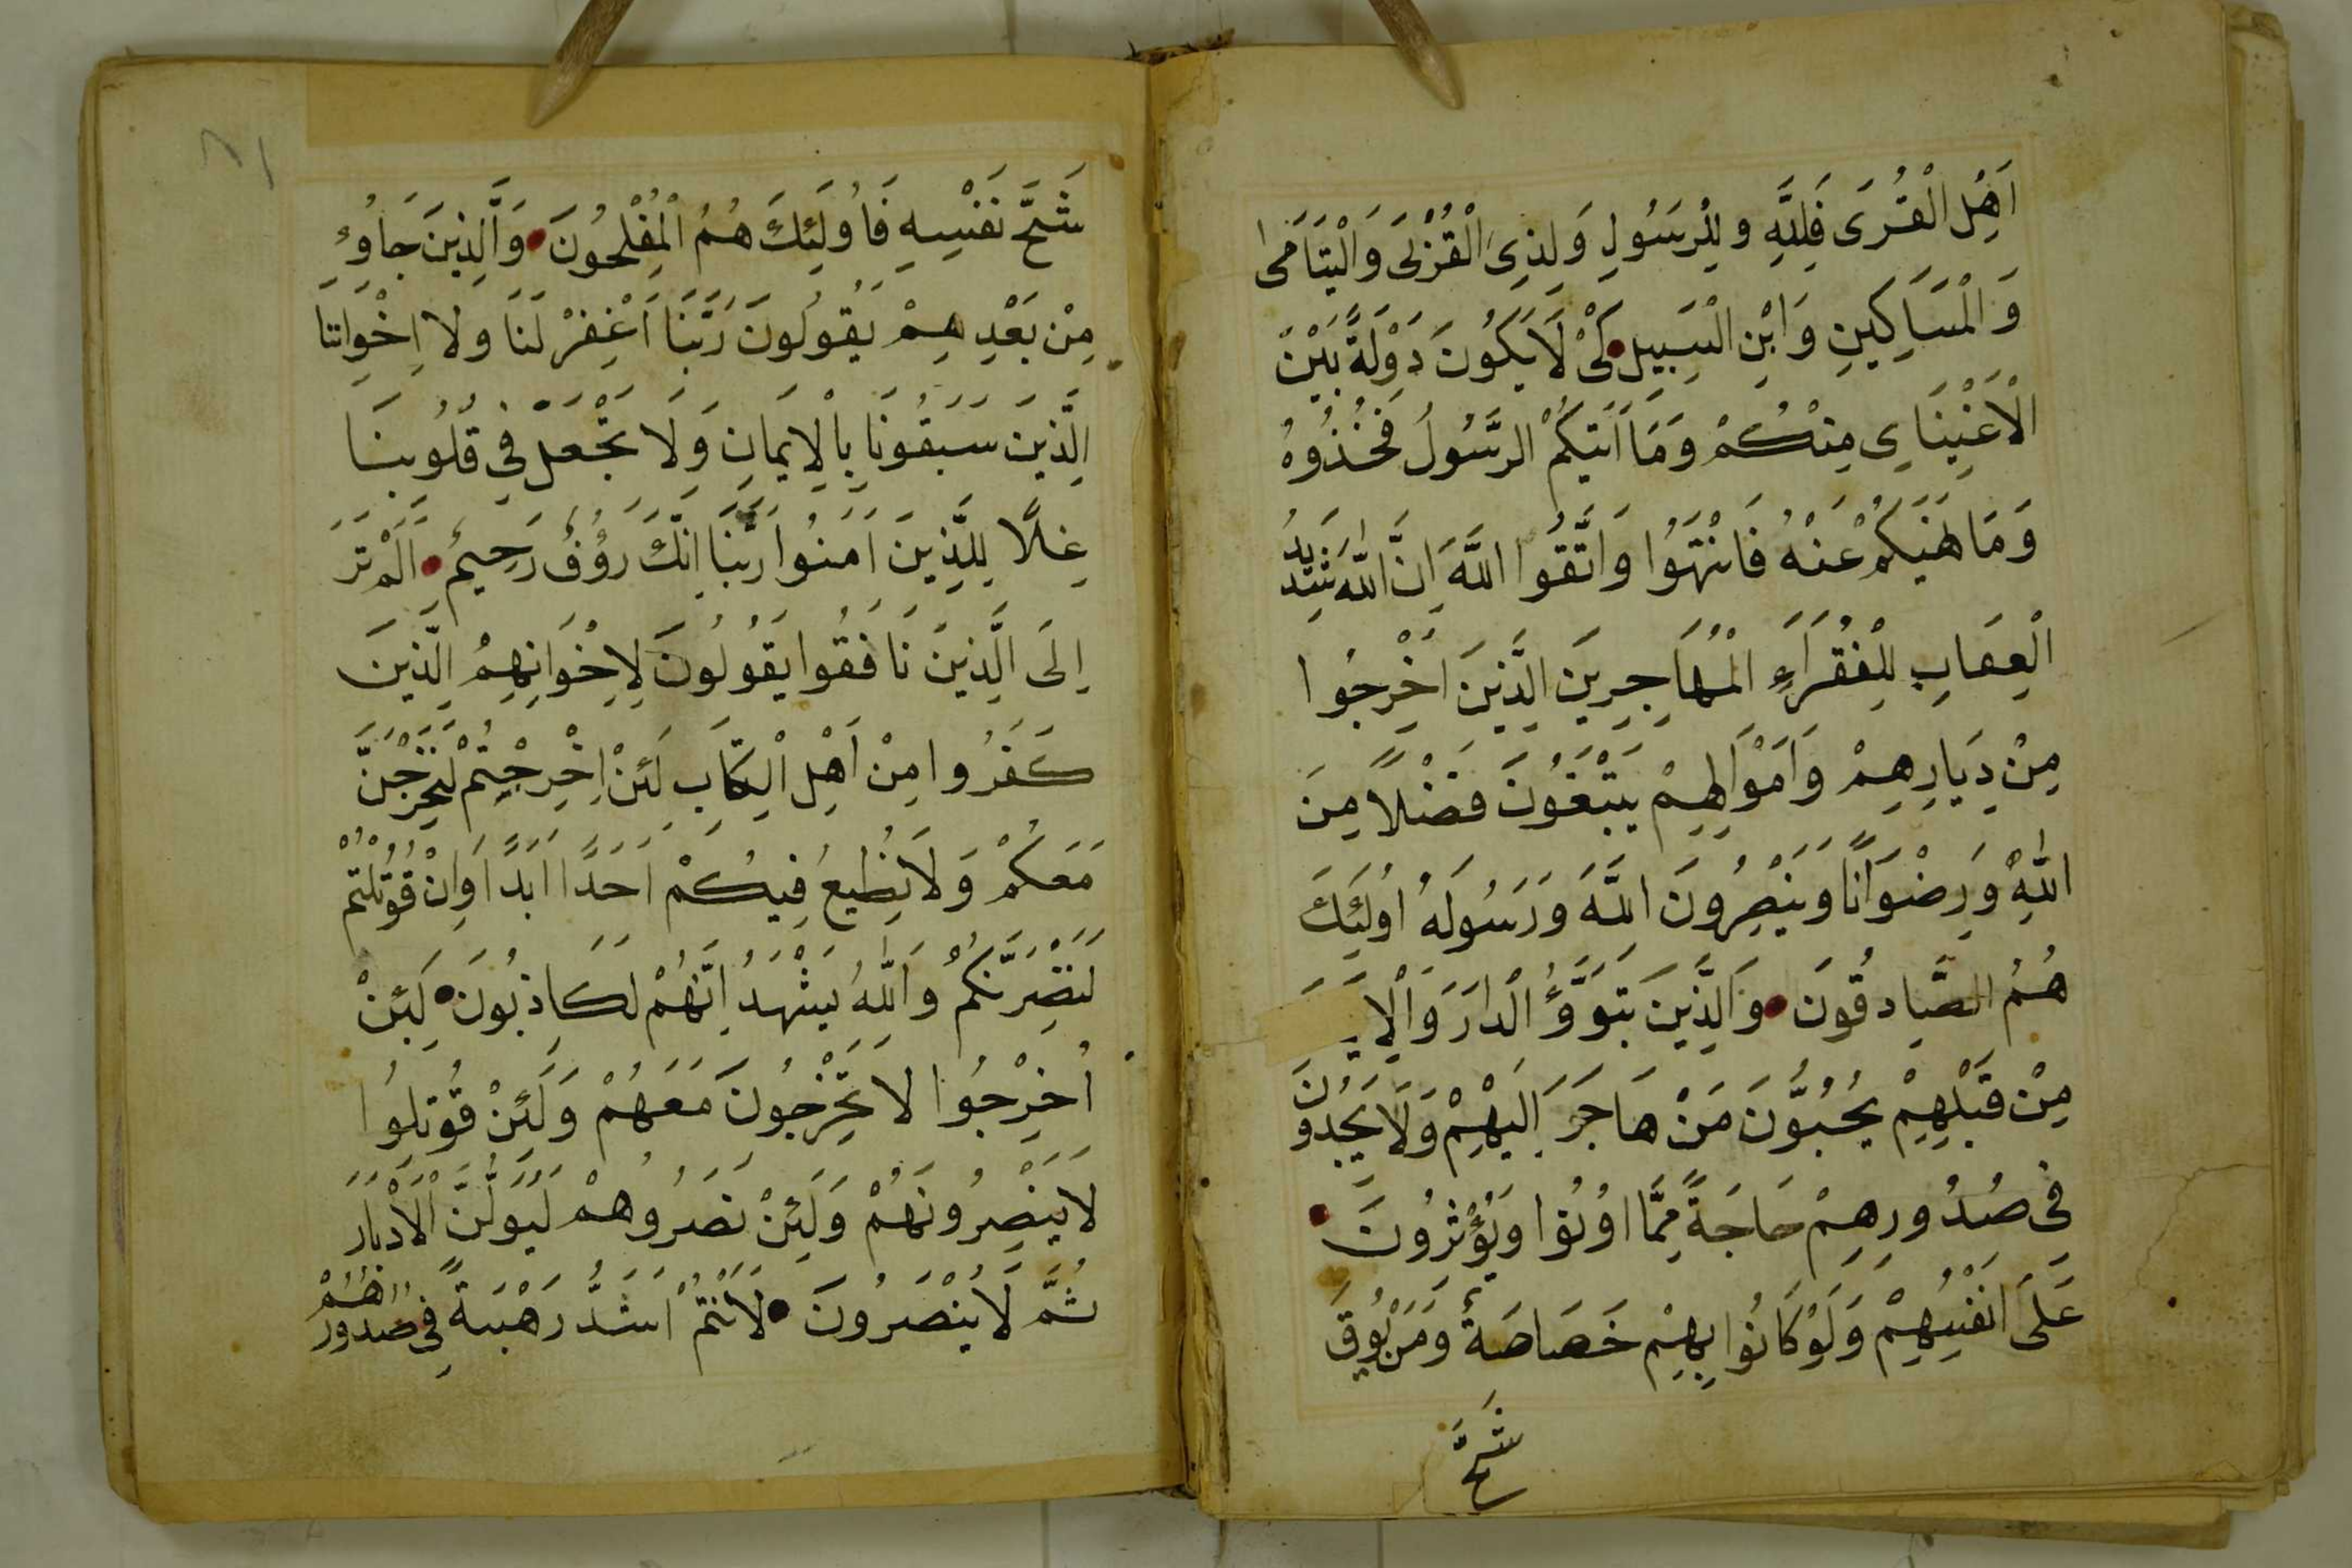 اَهْلِ الْقُرَى فَلِلَّهِ وِللْرَسُولِ وَلِذِيِ الْقُرْبَى وَالْيَتَامَى
وَالْمَسَاكِينِ وَابْنِ الْسَبِيلِ كَىْ لَايَكُونَ دَوْلَةً بَيْنَ
الْاَغْنِيَاىِ مِنْكُمْ وَمَا اَتَيكُمْ الرَّسُولُ فَخُذُوهُ
وَمَا نَهَيكُمْ عَنْهُ فَانْتَهَوُا وَاتَّقُوا اللَّهَ اِنَّ اللّٰهَ شَدِيدُ
الْعِقَابِ لِلْفُقَرَاءِ الْمُهَاجِرِينَ الَّذِينَ اُخْرِجُوا
مِنْ دِيَارِهِمْ وَاَمْوَالِهِمْ يَبْتَغُونَ فَضْلاً مِنَ
اللّٰهِ وَرِضْوَانًا وَيَنْصِرُونَ اللَّهَ وَرَسُولَهُ اُولَئِكَ
هُمُ الصَّادِقُونَ وَالَّذِينَ تَبَوَّؤُ الْدَارَ وَالْاِيـ
مِنْ قَبْلِهِمْ يُحِبُّونَ مَنْ هَاجَرَ اِلَيْهِمْ وَلَايَجِدُونَ
فِى صُدُورِهِمْ حَاجَةً مِمَّا اُوتُوا وَيُؤْثِرُونَ
عَلَى اَنْفُسِهِمْ وَلَوْكَانُوا بِهِمْ خَصَاصَةٌ وَمَنْ يُوقَ
شُحَّ
٨١
شُحَّ نَفْسِهِ فَاُولَئِكَ هُمُ الْمُفْلِحُونَ وَالَّذِينَ جَاوُءِ
مِنْ بَعْدِهِمْ يَقُولُونَ رَبَّنَا اَغْفِرْ لَنَا وَلا اِخْوَانِنَا
الَّذِينَ سَبَقُونَا بِالْاِيمَانِ وَلَا تَجْعَلْ فِى قُلُوبِنَا
غِلاًّ لِلَّذِينَ اَمَنُوا رَبَّنَا اِنَّكَ رَؤُفٌ رَحِيمٌ اَلَمْ تَرَ
اِلَى الَّذِينَ نَافَقُوا يَقُولُونَ لِاِخْوَانِهِمُ الَّذِينَ
كَفَرُوا مِنْ اَهْلِ الْكِتَابِ لَئِنْ اِخْرِجْتُمْ لَنَخْرُجَنَّ
مَعَكُمْ وَلَانُطِيعُ فِيكُمْ اَحَدًا اَبَدًا وَاِنْ قُوتُلْتُمْ
لَنَنْصِرَنَّكُمْ وَاللّٰهُ يَشْهَدُ اِنَّهُمْ لَكَاذِبُونَ لَئِنْ
اُخْرِجُوا لَا يَخْرِجُونَ مَعَهُمْ وَلَئِنْ قُوتِلُوا
لَا يَنْصِرُونَهُمْ وَلَئِنْ نَصَرُوهُمْ لَيُوَلُّنَّ الْاَدْبَارَ
ثُمَّ لَايُنْصَرُونَ لَاَنْتُمْ اَشَدُّ رَهْبَةً فِى صُدُورِهُمْ